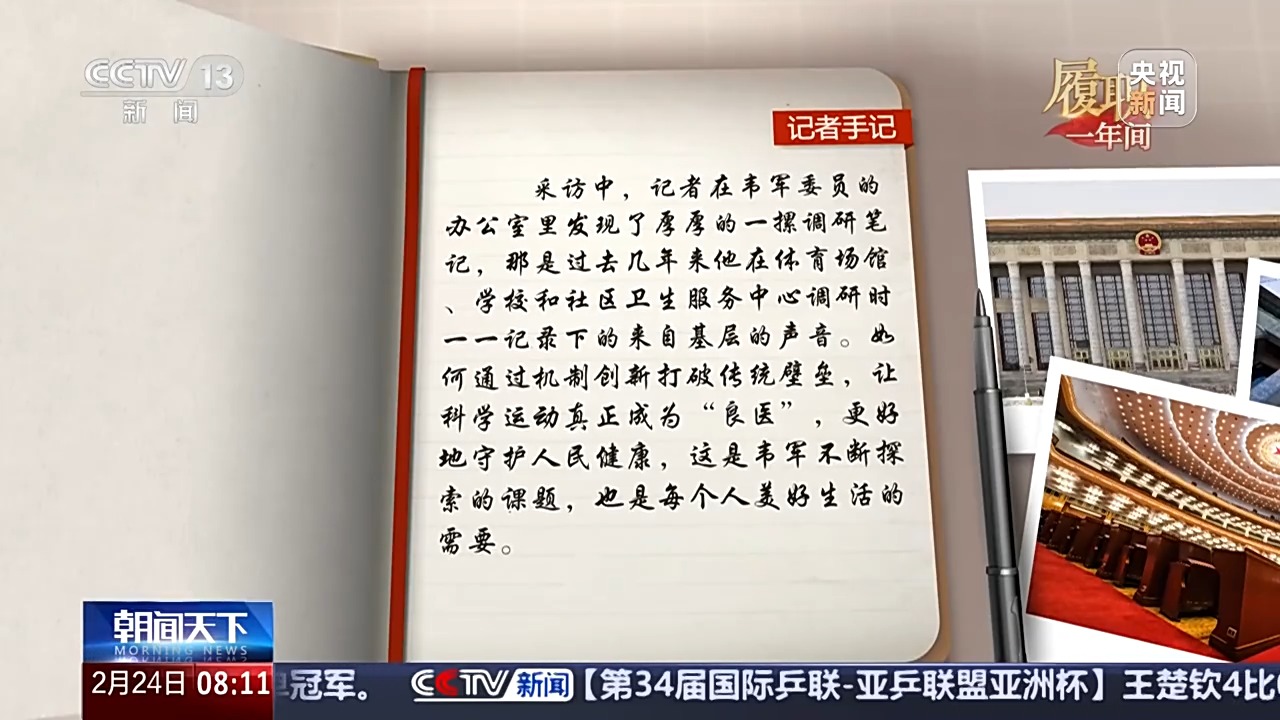 CCTV 13
新闻
央视
新闻
履职
一年间
记者手记
采访中，记者在韦军委员的
办公室里发现了厚厚的一摞调研笔
记，那是过去几年来他在体育场馆
、学校和社区卫生服务中心调研时
一一记录下的来自基层的声音。如
何通过机制创新打破传统壁垒，让
科学运动真正成为“良医”，更好
地守护人民健康，这是韦军不断探
索的课题，也是每个人美好生活的
需要。
朝闻天下
MORNING NEWS
2月24日 08:11
冠军。 CCTV新闻【第34届国际乒联-亚乒联盟亚洲杯】王楚钦4比